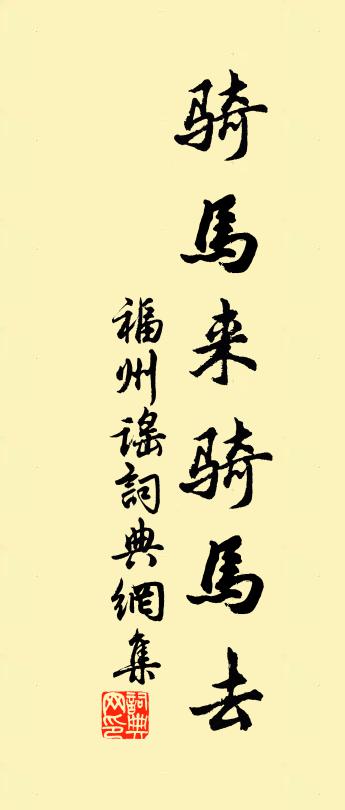 骑馬来骑馬去
福州谣詞典網集
詞典网印